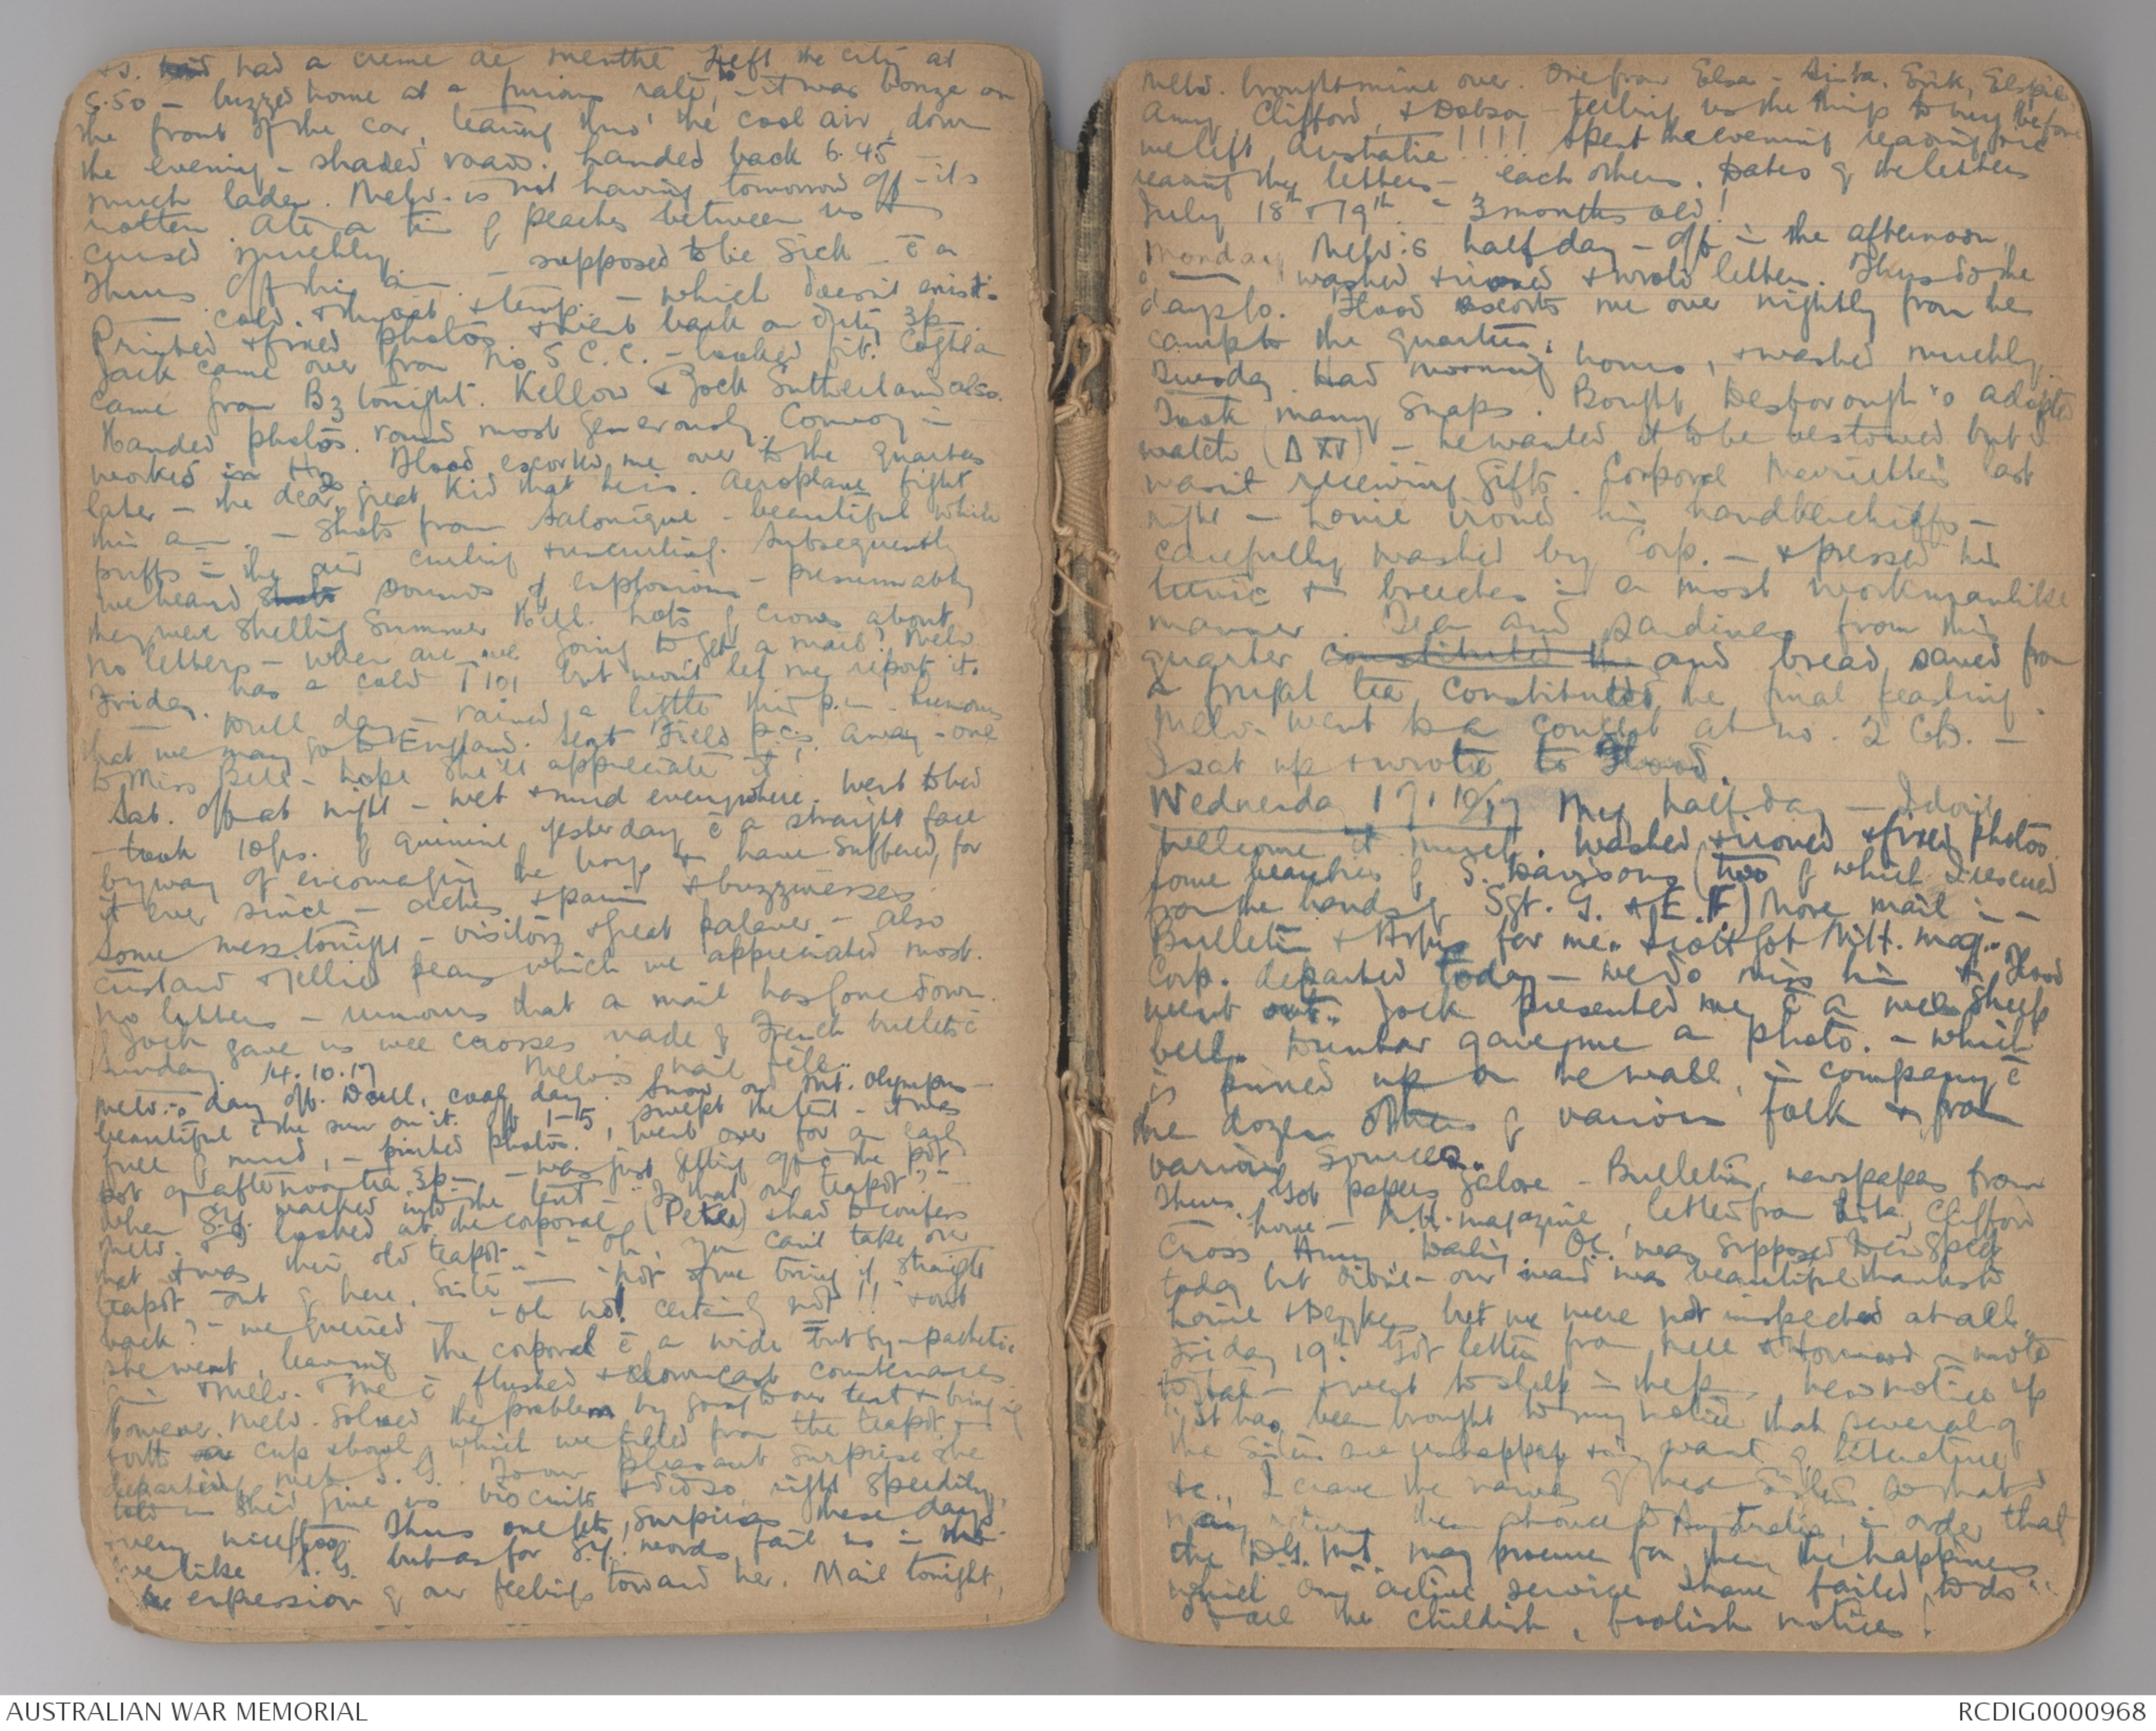 had a creme de menthe Left the city at
5.50 – buzzed home at a furious rate, – it was bonza on
the front of the car, tearing thro' the cool air, down
the evening – shaded roads. Landed back 6.45
much laden. Melv. is not having tomorrow off – its
rotten. Ate a tin of peaches between us &
cursed muchly
Thurs. Off this – supposed to be sick – c̄ a
cold & throat & temp. – which doesn't exist.
Printed & fixed photos & went back on duty 3p
Jack came over from No. 5 C.C. – looked fit.
came from B3 tonight. Kellow & Jock Sutherland also.
Handed photos round most generously. Convoy in
worked in H2. Flood escorted me over to the quarters
later – the dear, great kid that he is. Aeroplane fight
this a – shots from Salonique – beautiful white
puffs in the air curling & uncurling. Subsequently
we heard sounds of explosions – presumably
they were shelling Summer Hill. Lots of crows about
no letters – when are we going to get a mail? Melv
Friday. has a cold T 101 but won't let me report it.
Dull day – rained a little this p.m. – Rumours
that we may go to England. Sent Field p.cs. away – one
to Miss Bell – hope she'll appreciate it
Sat. Off at night – wet & mud everywhere. Went to bed
– took 10grs. of quinine yesterday c̄ a straight face
by way of encouraging the boys & have suffered for
it ever since – aches & pains & buzzinesses.
Some mess tonight – visitors & great palaver – also
custard & jellied pears which we appreciated most.
no letters – rumours that a mail has gone down.
Jock gave us wee crosses made of French bullets c̄
Sunday. 14.10.17 Melv's nail file..
Melv.'s day off. Dull, cool day. Snow on Mt. Olympus –
beautiful c̄ the sun on it. Off 1-5, swept the tent – it was
full of mud, – printed photos. went over for an early
pot of afternoon tea 3p – was just getting off c̄ the pot
when S.Y. walked into the tent – "Is that our teapot?" –
Melv. & I looked at the corporal (Peter) & had to confess
that it was their old teapot.. – "Oh, you can't take our
teapot out of here, Sister – "not if we bring it straight
back?" – we queried – "Oh no! certainly not!!" & out
she went, leaving the corporal c̄ a wide but sympathetic
grin & Melv. & me c̄ flushed & downcast countenances
However, Melv. solved the problem by going to our tent & bringing
forth cup, which we filled from the teapot &
departing met S.G. To our pleasant surprise she
told us she'd give us biscuits & did so, right speedily,
very nice too. Thus one gets surprises these days
we like S.G. but as for S.Y. words fail us in
the expression of our feelings toward her. Mail tonight,
Melv. brought mine over. One from Elsa – Erik, Elspie
Amy, Clifford, & Dobson – telling us the things to buy before
we left Australia!!!! Spent the evening reading and
rereading the letters – each others. Dates of the letters
July 18th & 19th – 3 months old!
Monday Melv.'s half day – off in the afternoon,
washed & ironed & wrote letters. Thus do the
days go. Flood escorts me over nightly from the
camp to the quarters.
Tuesday. Had morning hours, & washed muchly.
Took many snaps. Bought Desborough's adopted
watch – he wanted it to be bestowed but I
wasn't receiving gifts. Corporal Marriette's last
night – Lonie ironed his handkerchiefs –
carefully washed by Corp. – & pressed his
tunic & breeches in a most workmanlike
manner. Tea and sardines from this
quarter constituted the and bread saved from
a frugal tea constituted the final feasting.
Melv. went to a concert at no. 2 C.B. –
I sat up & wrote to Flood.
Wednesday 17.10/17 My half day – I don't
wellcome it much. Washed & ironed & fixed photos
some beauties of S. Davisons (two of which I rescued
from the hands of Sgt. G. & E.F.) More mail in –
Bulletin for me.. & Scott got N.H. mag..
Corp. departed today – we do miss him & Flood
went out.. Jock presented me c̄ a wee sheep
bell. Dunbar gave me a photo. – which
is pinned up on the wall, in company c̄
the dozen others of various folk & from
various sources..
Thurs. Got papers galore – Bulletins, newspapers from
home – N.H. magazine, letters from Clifford
Cross O.C. was supposed to inspect
today but didn't – our ward was beautiful thanks to
Lonie but we were not inspected at all
Friday 19th Got letter from Nell & Howard – wrote
to – & went to sleep. New notice up
"It has been brought to my notice that several of
the Sisters are unhappy & in want of literature
etc., I crave the names of these Sisters so that I
may return them at once to Australia, in order that
the D.G.M.S. may procure for them the happiness
which on active service I have failed to do"
Of all the childish, foolish notices!
AUSTRALIAN WAR MEMORIAL
RCDIG0000968